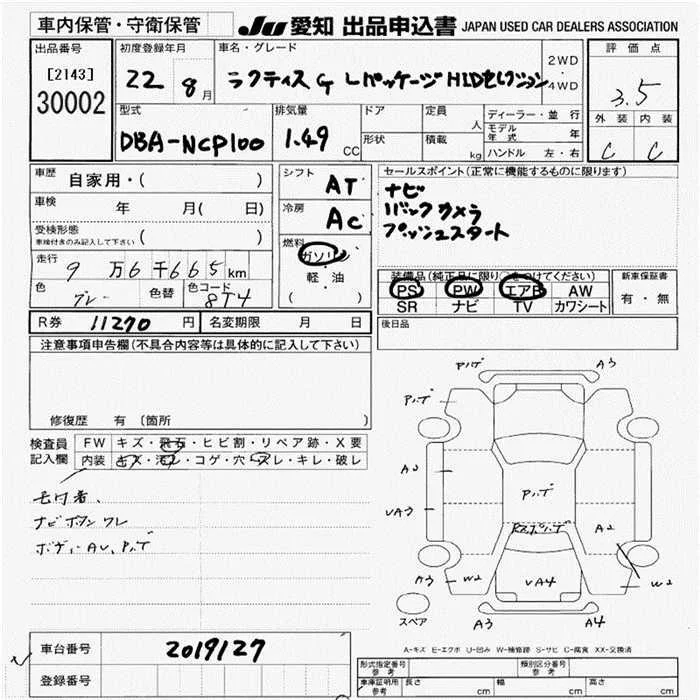 車内保管・守衛保管
JU 愛知 出品申込書 JAPAN USED CAR DEALERS ASSOCIATION
出品番号
[2143]
30002
初度登録年月
22 8月
車名・グレード
ラクティス G Lパッケージ HIDセレクション
2WD
・
4WD
評価点
3.5
外装 内装
C C
型式
DBA-NCP100
排気量
1.49 CC
ドア
形状
定員 人
積載 kg
ディーラー・並行
モデル年式 年
ハンドル 左・右
車歴 自家用・( )
車検 年 月( 日)
受検形態
車検付きのみ記入して下さい ( )
走行 9万6千665km
色 グレー 色替 色コード 8T4
シフト AT
冷房 AC
燃料
ガソリン
軽・油
( )
セールスポイント(正常に機能するものに限ります)
ナビ
バックカメラ
プッシュスタート
装備品(純正品に限り○をつけてください)
PS PW エアB AW
SR ナビ TV カワシート
新車保証書
有・無
R券 11270 円 名変期限 月 日
後日品
注意事項申告欄(不具合内容等は具体的に記入して下さい)
修復歴 有 [箇所 ]
検査員
記入欄
FW キズ・飛石・ヒビ割・リペア跡・X要
内装 キズ・汚レ・コゲ・穴・スレ・キレ・破レ
ナビボタン ワレ
A3
A3
VA3
A2
A3 W2
VA4
W2
A3 A4
スペア
A-キズ E-エクボ U-凹み W-補修跡 S-サビ C-腐食 XX-交換済
車台番号 2019127
登録番号
形式指定番号 参考
類別区分番号 参考
車庫証明用 参考 長さ cm 幅 cm 高さ cm